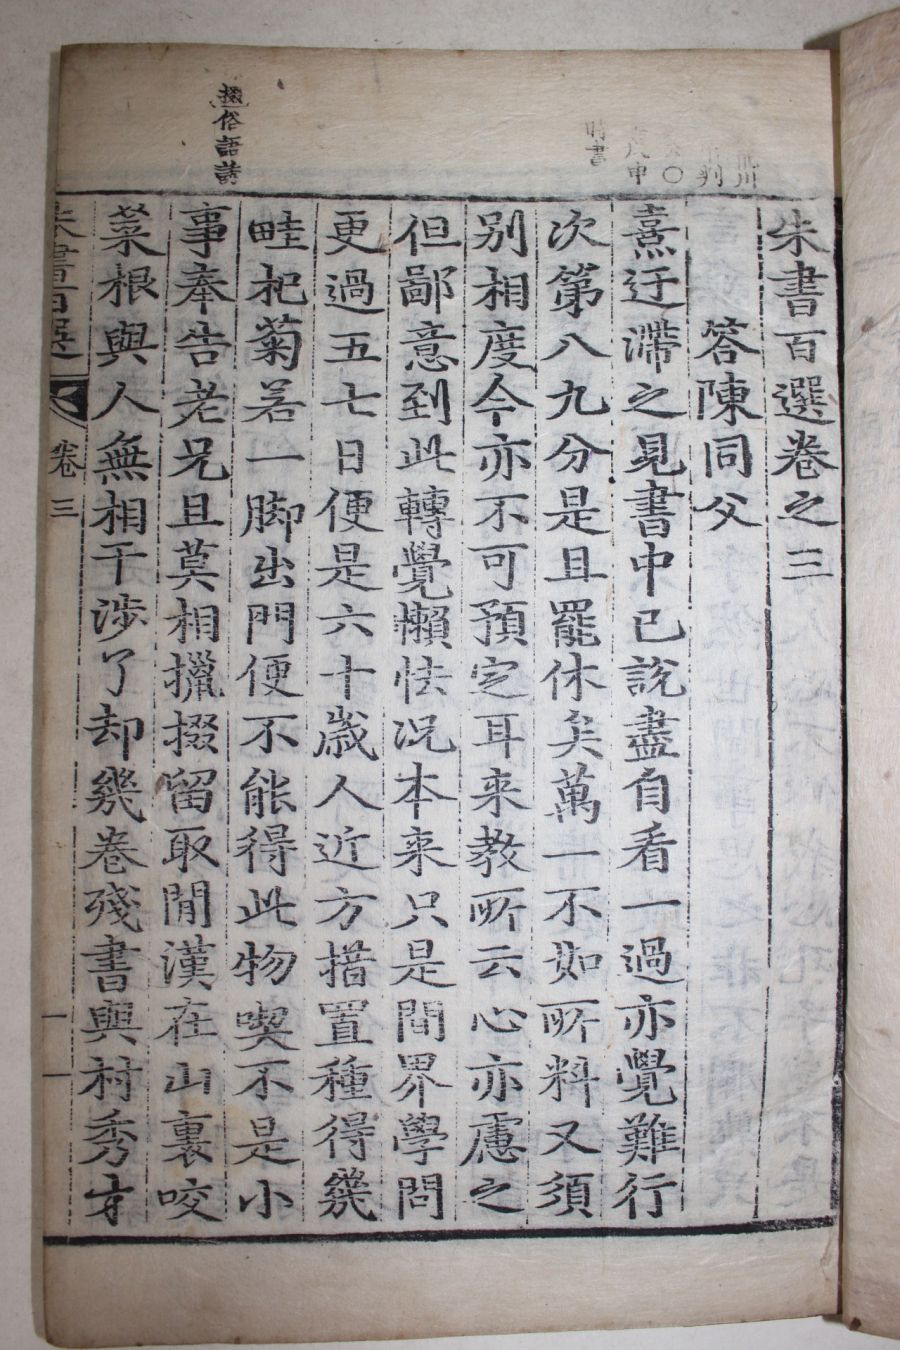 朱書百選卷之三
答陳同父
熹迂滯之見書中已說盡自看一過亦覺難行
次第八九分是且罷休矣萬一不如所料又須
別相度今亦不可預定耳來教所云心亦慮之
但鄙意到此轉覺懶怯况本來只是間界學問
更過五七日便是六十歲人近方措置種得幾
畦杞菊若一脚出門便不能得此物喫不是小
事奉告老兄且莫相攛掇留取閒漢在山裏咬
菜根與人無相干涉了却幾卷殘書與村秀才
朱書百選
卷三
一
時書
俗語